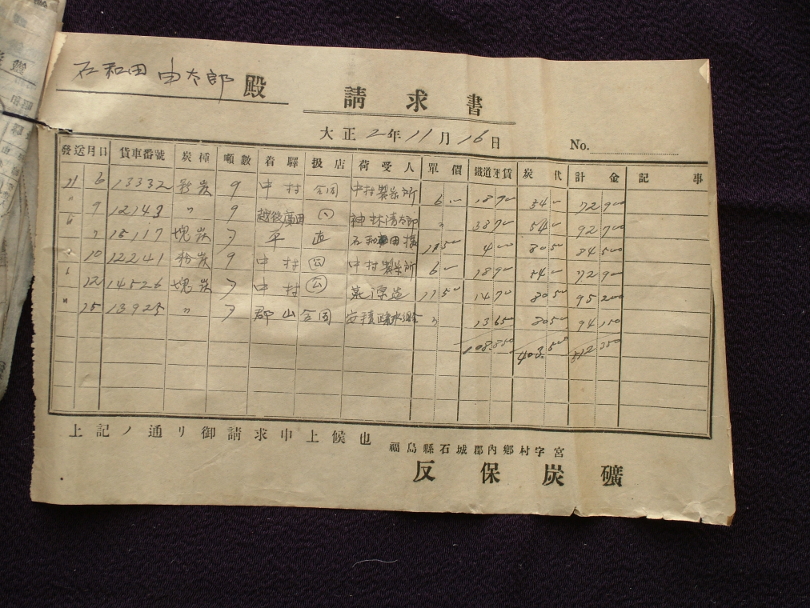 石和田 由太郎 殿
請求書
大正 2年 11月 16日
No.
發送月日 貨車番號 炭種 噸數 着驛 扱店 荷受人 單價 鐵道運賃 炭代 計金 記事
6 13332 粉炭 9 中村 合同 中村製糸所 6 18 900 54 72 900
〃 9 12143 〃 9 越後廣田 〃 38 700 54 92 700
〃 15117 塊炭 7 平 直 石和田様 11 500 4 00 80 500 84 500
〃 10 12241 粉炭 9 中村 中村製糸所 6 18 900 54 72 900
〃 12 14526 塊炭 7 中村 11 500 14 700 80 500 95 200
〃 15 13925 〃 7 郡山 合同 〃 13 650 80 500 94 150
108 850 403 500 512 350
上記ノ通リ御請求申上候也
福島縣石城郡内郷村字宮
反保炭礦